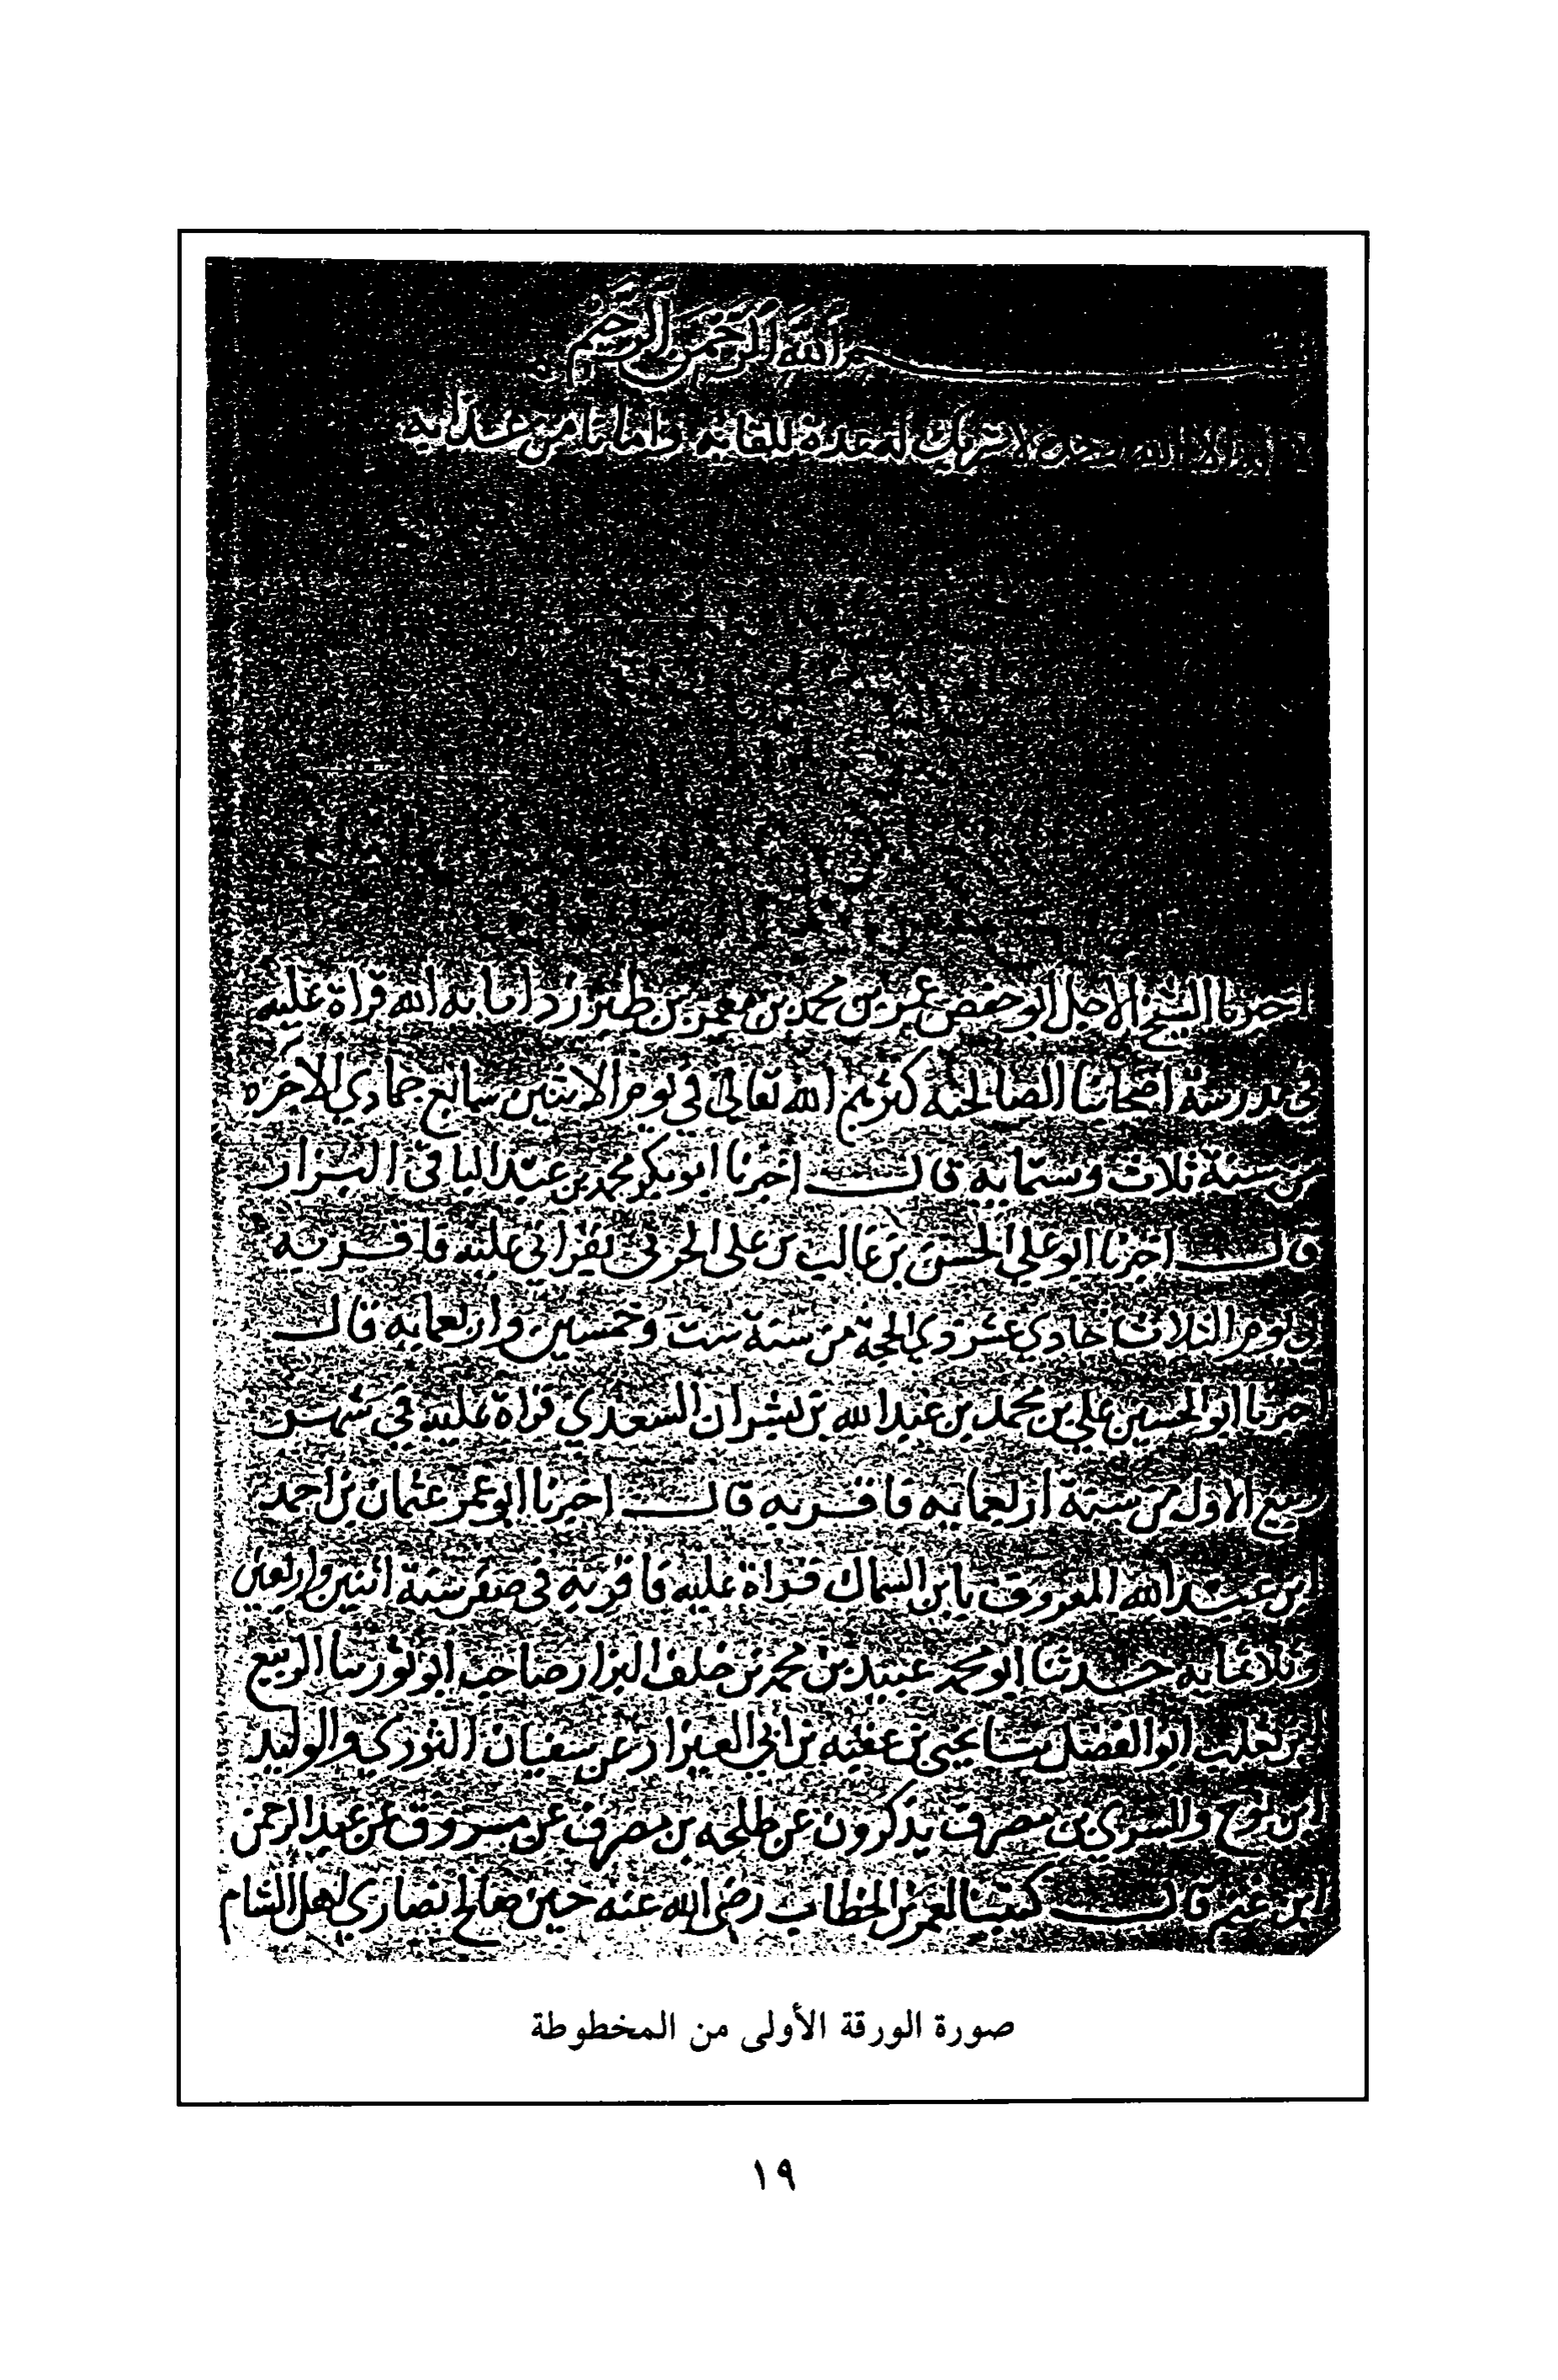 بسم الله الرحمن الرحيم
لا اله الا الله وحده لا شريك له عدة للقائه وامانا من عذابه
اخبرنا الشيخ الاجل ابو حفص عمر بن محمد بن معمر بن طبرزد اثابه الله قراة عليه
في مدرسة اصحابنا الصالحية كثرهم الله تعالى في يوم الاثنين سابع جمادي الاخره
من سنة ثلاث وستمايه قال اخبرنا ابو بكر محمد بن عبد الباقي البزار
قال اخبرنا ابو علي الحسن بن غالب بن علي الحربي بقراتي عليه فاقر به
في يوم الثلاث حادي عشر ذي الحجة من سنة ست وخمسين واربعمايه قال
اخبرنا ابو الحسين علي بن محمد بن عبد الله بن بشران السعدي قراة عليه في شهر
ربيع الاول من سنة اربعمايه فاقر به قال اخبرنا ابو عمر عثمان بن احمد
ابن عبد الله المعروف بابن السماك قراة عليه فاقر به في صفر سنة اثنين واربعين
وثلاثمايه حدثنا ابو محمد عبيد بن محمد بن خلف البزار صاحب ابو ثور سا الربيع
ابن تغلب ابو الفضل سا يحيى بن عقبه بن ابي العيزار عن سفيان الثوري والوليد
ابن نوح والسري بن مصرف يذكرون عن طلحه بن مصرف عن مسروق عن عبد الرحمن
ابن غنم قال كتبنا لعمر بن الخطاب رضي الله عنه حين صالح نصاري اهل الشام
صورة الورقة الأولى من المخطوطة
١٩